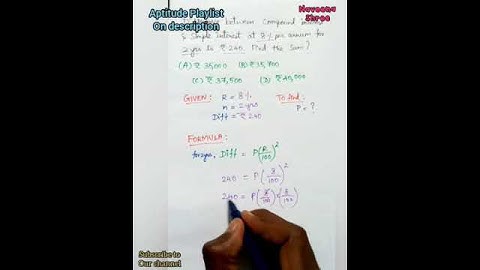 Aptitude Playlist
On description
Naveena
Shree
between Compound
& Simple Interest at 8% per annum for
2 yrs is ₹ 240. Find the Sum?
(A) ₹ 35,000
(C) ₹ 37,500 (D) ₹ 40,000
GIVEN: R = 8% To find:
n = 2 yrs P = ?
Diff = ₹ 240
FORMULA:
for 2 yrs, Diff = P(R/100)²
240 = P(8/100)²
240 = P(8/100) × (8/100)
Subscribe to
Our channel